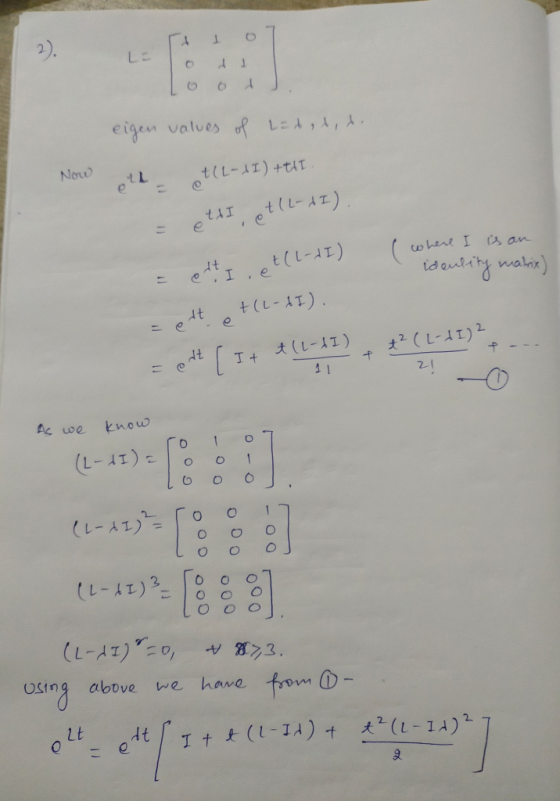 2).
L = [λ 1 0
0 λ 1
0 0 λ].
eigen values of L = λ, λ, λ.
Now e^{tL} = e^{t(L-λI)+tλI}.
= e^{tλI} . e^{t(L-λI)}.
= e^{λt} . I . e^{t(L-λI)} (where I is an identity matrix)
= e^{λt} . e^{t(L-λI)}.
= e^{λt} [ I + t(L-λI)/1! + t²(L-λI)²/2! + --- —①
As we know
(L-λI) = [0 1 0
0 0 1
0 0 0].
(L-λI)² = [0 0 1
0 0 0
0 0 0]
(L-λI)³ = [0 0 0
0 0 0
0 0 0].
(L-λI)^r = 0, ∀ ≥3.
Using above we have from ① -
e^{Lt} = e^{λt} [ I + t(L-Iλ) + t²(L-Iλ)²/2 ]